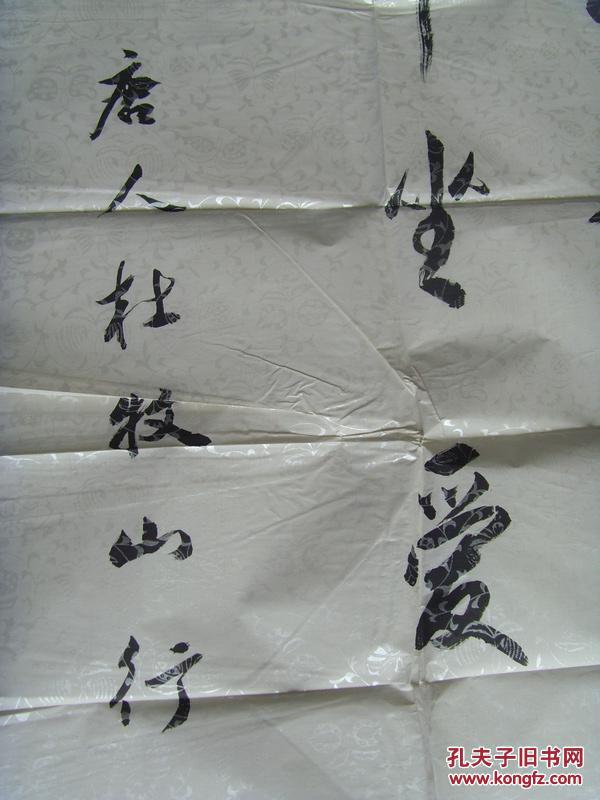 坐爱
唐人杜牧山行
孔夫子旧书网
www.kongfz.com